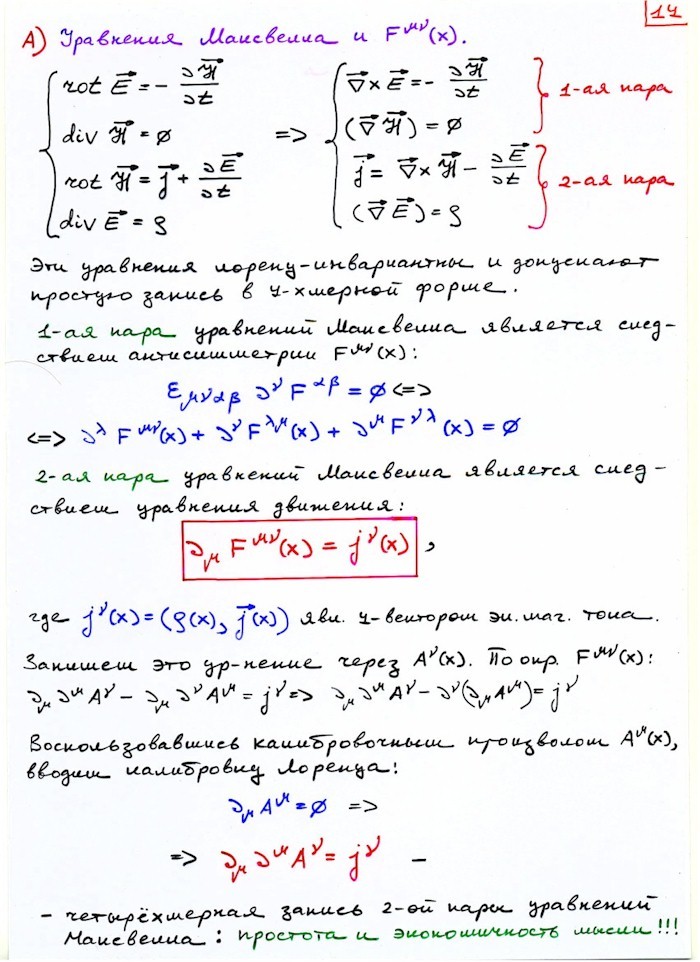 14
А) Уравнения Максвелла и F^{μν}(x).
rot E⃗ = - ∂H⃗/∂t
div H⃗ = 0
rot H⃗ = j⃗ + ∂E⃗/∂t
div E⃗ = ρ
=>
∇⃗ × E⃗ = - ∂H⃗/∂t
(∇⃗ H⃗) = 0
} 1-ая пара
j⃗ = ∇⃗ × H⃗ - ∂E⃗/∂t
(∇⃗ E⃗) = ρ
} 2-ая пара
Эти уравнения лоренц-инвариантны и допускают
простую запись в 4-хмерной форме.
1-ая пара уравнений Максвелла является след-
ствием антисимметрии F^{μν}(x):
ε_{μναβ} ∂^ν F^{αβ} = 0 <=>
<=> ∂^λ F^{μν}(x) + ∂^ν F^{λμ}(x) + ∂^μ F^{νλ}(x) = 0
2-ая пара уравнений Максвелла является след-
ствием уравнения движения:
∂_μ F^{μν}(x) = j^ν(x) ,
где j^ν(x) = (ρ(x), j⃗(x)) явл. 4-вектором эл. маг. тока.
Запишем это ур-нение через A^ν(x). По опр. F^{μν}(x):
∂_μ ∂^μ A^ν - ∂_μ ∂^ν A^μ = j^ν => ∂_μ ∂^μ A^ν - ∂^ν(∂_μ A^μ) = j^ν
Воспользовавшись калибровочным произволом A^μ(x),
вводим калибровку Лоренца:
∂_μ A^μ = 0 =>
=> ∂_μ ∂^μ A^ν = j^ν -
- четырёхмерная запись 2-ой пары уравнений
Максвелла: простота и экономичность мысли!!!